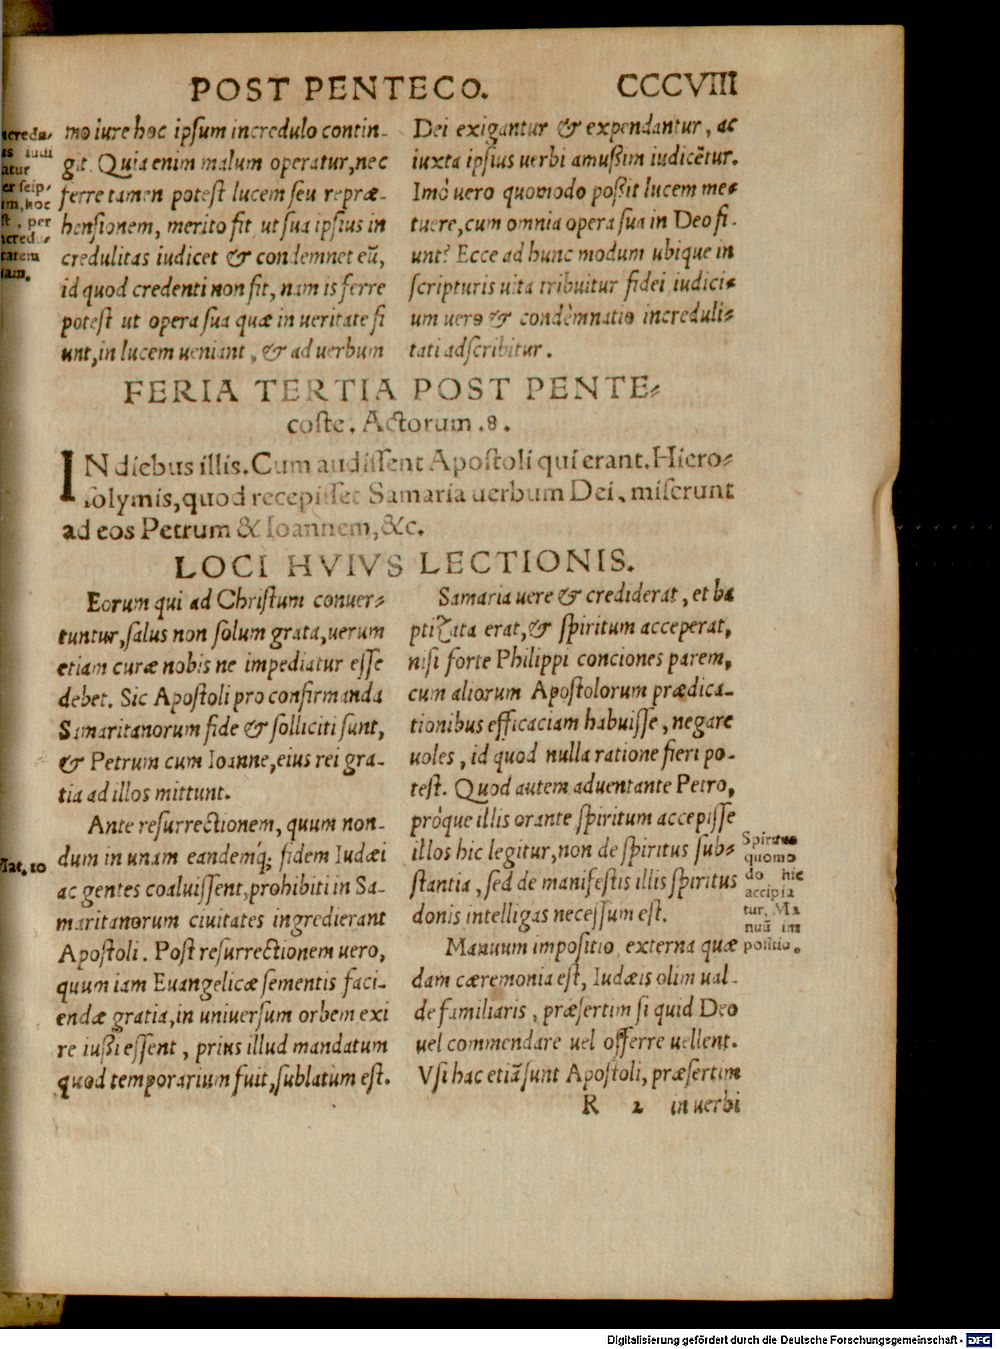 POST PENTECO. CCCVIII
mo iure hoc ipsum incredulo contin-
git. Quia enim malum operatur, nec
ferre tamen potest lucem seu repræ-
hensionem, merito fit ut sua ipsius in
credulitas iudicet & condemnet eũ,
id quod credenti non fit, nam is ferre
potest ut opera sua quæ in ueritate fi
unt, in lucem ueniant, & ad uerbum
Dei exigantur & expendantur, ac
iuxta ipsius uerbi amußim iudicẽtur.
Imò uero quomodo poßit lucem me-
tuere, cum omnia opera sua in Deo fi-
unt? Ecce ad hunc modum ubique in
scripturis uita tribuitur fidei iudici-
um uero & condemnatio increduli-
tati adscribitur.
FERIA TERTIA POST PENTE-
coste. Actorum .8.
IN diebus illis. Cum audissent Apostoli qui erant. Hiero-
solymis, quod recepisset Samaria uerbum Dei, miserunt
ad eos Petrum & Ioannem, &c.
LOCI HVIVS LECTIONIS.
Eorum qui ad Christum conuer-
tuntur, salus non solum grata, uerum
etiam curæ nobis ne impediatur esse
debet. Sic Apostoli pro confirmanda
Samaritanorum fide & solliciti sunt,
& Petrum cum Ioanne, eius rei gra-
tia ad illos mittunt.
Ante resurrectionem, quum non-
dum in unam eandemq́; fidem Iudæi
ac gentes coaluissent, prohibiti in Sa-
maritanorum ciuitates ingredierant
Apostoli. Post resurrectionem uero,
quum iam Euangelicæ sementis faci-
endæ gratia, in uniuersum orbem exi
re iußi essent, prius illud mandatum
quod temporarium fuit, sublatum est.
Mat. 10
Samaria uere & crediderat, et ba
ptizata erat, & spiritum acceperat,
nisi forte Philippi conciones parem,
cum aliorum Apostolorum prædica-
tionibus efficaciam habuisse, negare
uoles, id quod nulla ratione fieri po-
test. Quod autem aduentante Petro,
próque illis orante spiritum accepisse
illos hic legitur, non de spiritus sub-
stantia, sed de manifestis illis spiritus
donis intelligas necessum est.
Manuum impositio externa quæ
dam cæremonia est, Iudæis olim ual-
de familiaris, præsertim si quid Deo
uel commendare uel offerre uellent.
Vsi hac etiã sunt Apostoli, præsertim
Spiritus
quomo
do hic
accipia
tur. Ma
nuũ im
positio.
R 2 in uerbi
Digitalisierung gefördert durch die Deutsche Forschungsgemeinschaft - DFG